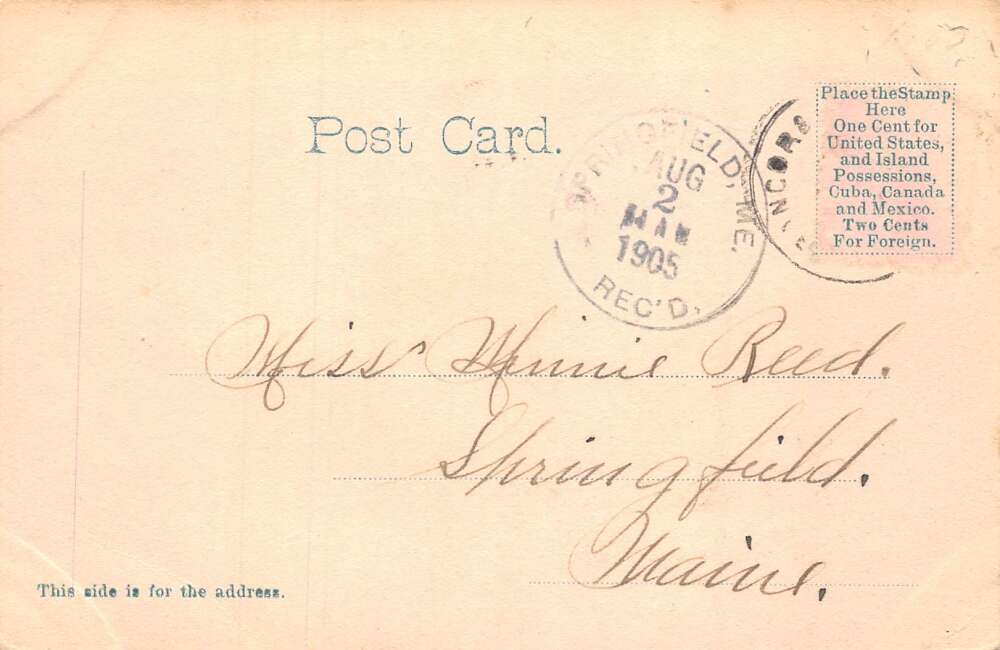 Post Card.
Place the Stamp
Here
One Cent for
United States,
and Island
Possessions,
Cuba, Canada
and Mexico.
Two Cents
For Foreign.
SPRINGFIELD, ME.
AUG
2
1905
REC'D.
Miss Minnie Reed.
Springfield.
Maine.
This side is for the address.